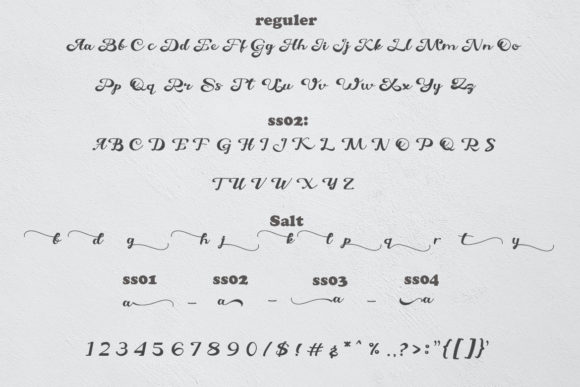 reguler
Aa Bb Cc Dd Ee Ff Gg Hh Ii Jj Kk Ll Mm Nn Oo
Pp Qq Rr Ss Tt Uu Vv Ww Xx Yy Zz
ss02:
A B C D E F G H I J K L M N O P Q R S
T U V W X Y Z
Salt
b d g h j k l p q r t y
ss01 ss02 ss03 ss04
a – a – a – a
1 2 3 4 5 6 7 8 9 0 / $ ! # & * ^ % . , ? > : " { [ ] } '